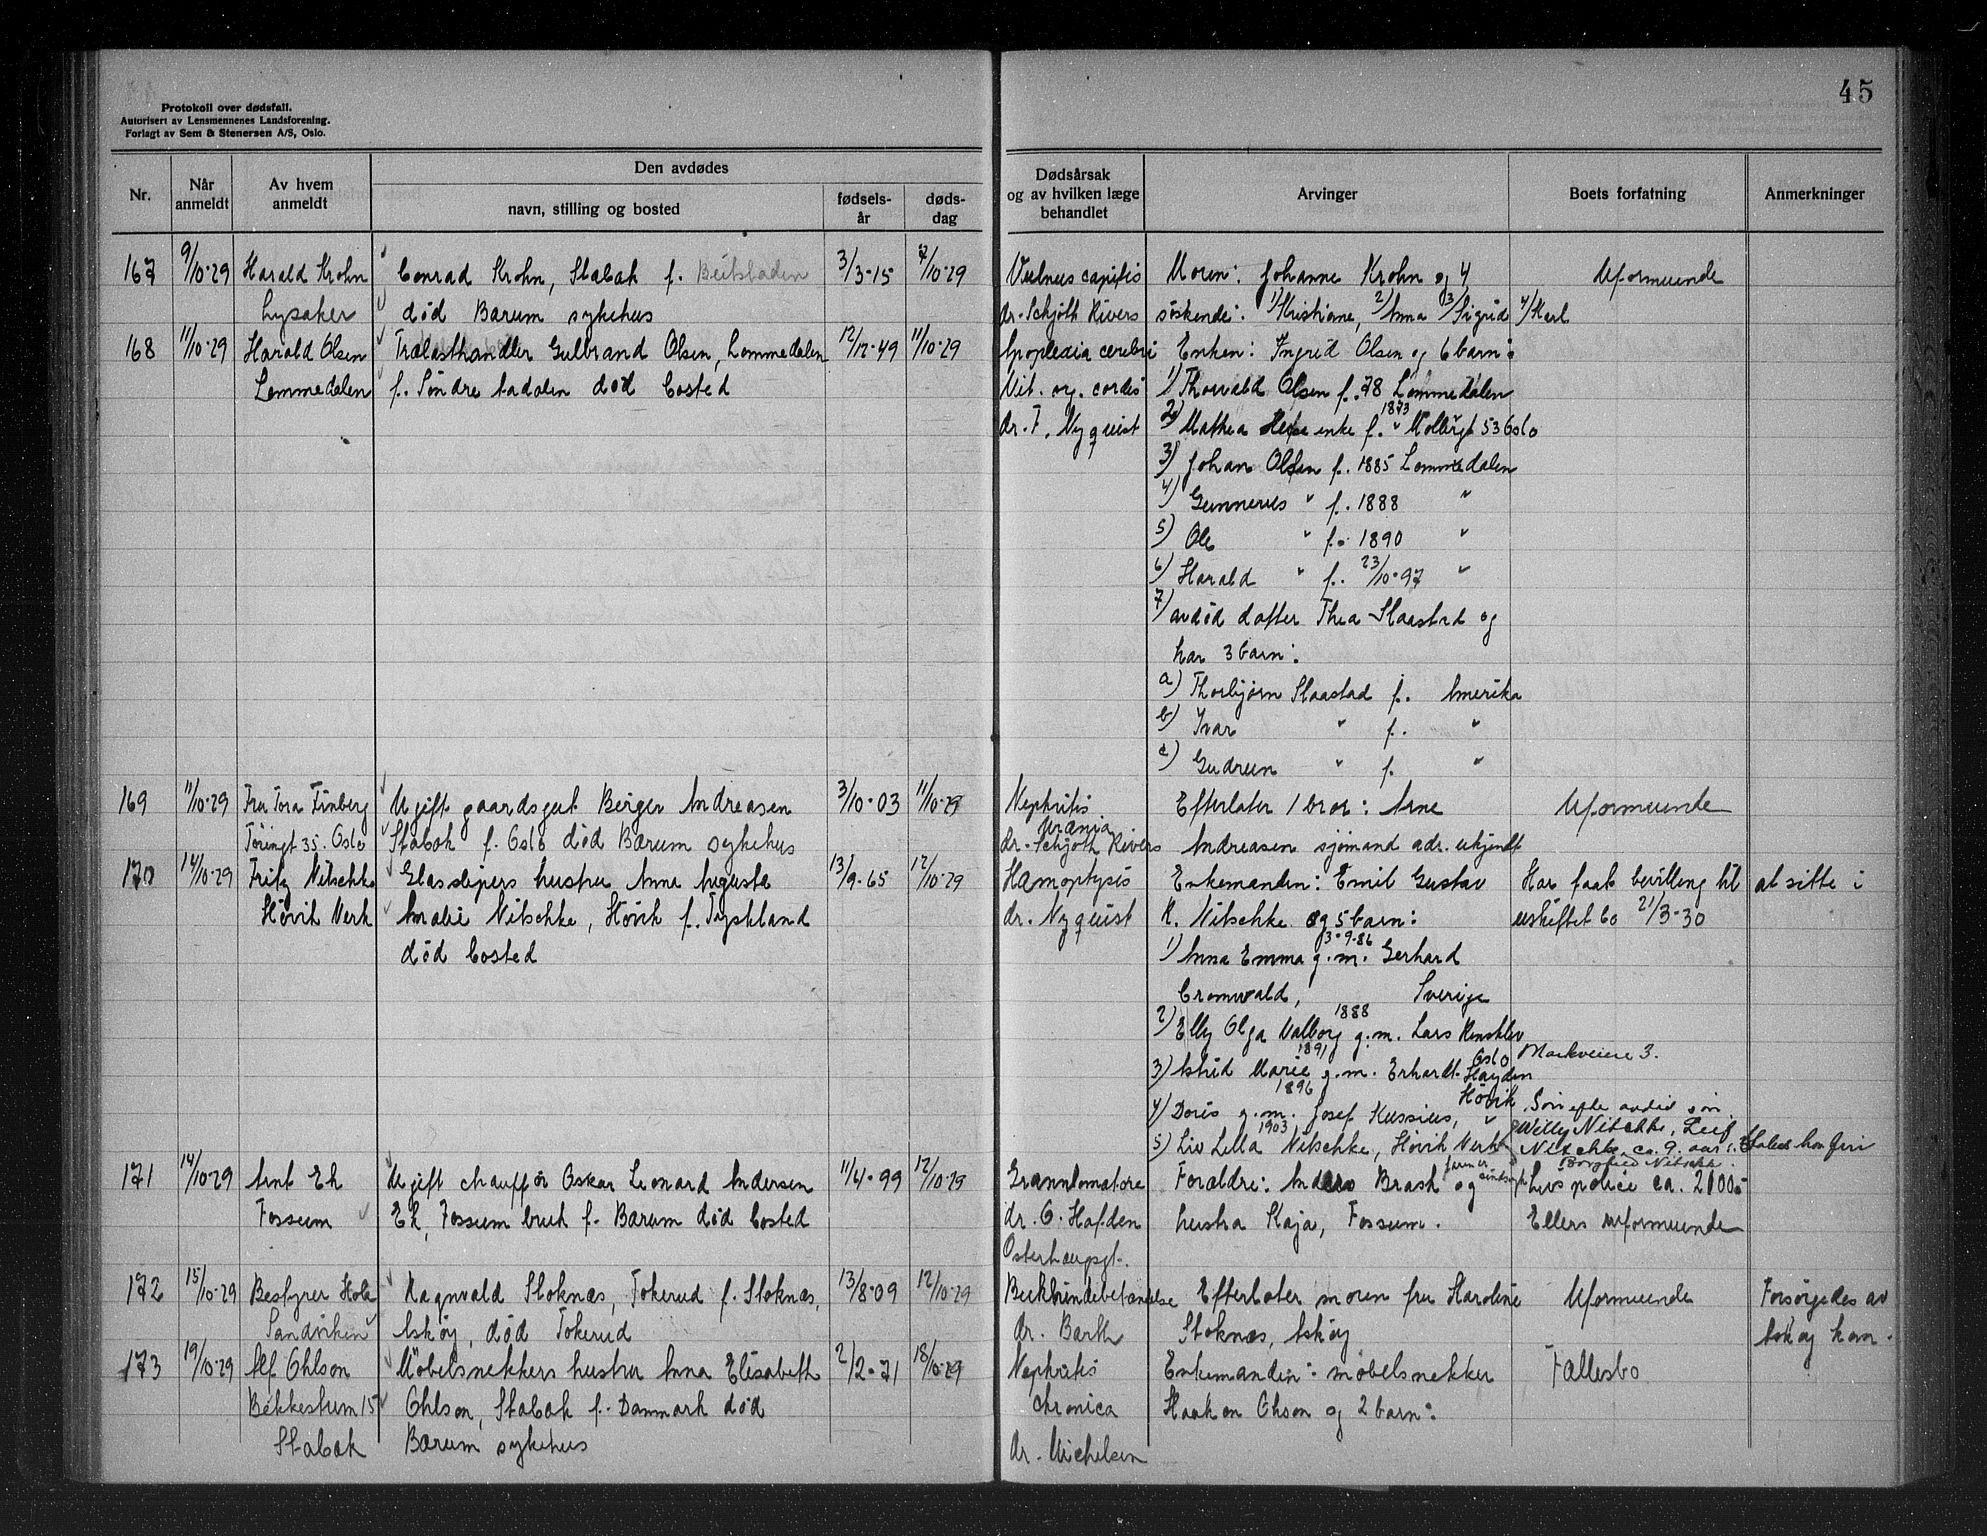 Protokoll over dødsfall.
Autorisert av Lensmennenes Landsforening.
Forlagt av Sem & Stenersen A/S, Oslo.
45
Nr.
Når anmeldt
Av hvem anmeldt
Den avdødes
navn, stilling og bosted
fødselsår
dødsdag
Dødsårsak og av hvilken læge behandlet
Arvinger
Boets forfatning
Anmerkninger
167 9/10-29 Harald Krohn Conrad Krohn, Stabæk f. Beitstaden 3/3-15 7/10-29 Vulnus capitis Moren: Johanne Krohn og 4 Uformuende
Lysaker død Bærum sykehus dr. Schjøth Rivers søskende: 1/ Kristiane, 2/ Anna 3/ Sigrid 4/ Karl
168 11/10-29 Harald Olsen Trælasthandler Gulbrand Olsen, Lommedalen 12/12-49 11/10-29 Apoplexia cerebri Enken: Ingrid Olsen og 6 barn:
Lommedalen f. Søndre Aadalen død bosted Vit. org. cordis 1) Thorvald Olsen f. 78 Lommedalen
dr. F. Nyquist 2) Mathea enke f. 1873 53 Oslo
3) Johan Olsen f. 1885 Lommedalen
4) Gunnerius " f. 1888 "
5) Ole " f. 1890 "
6) Harald " f. 23/10-97 "
7) avdød datter Thea Staastad og
har 3 barn:
a) Thorbjørn Staastad f. Amerika
b) Ivar " f. "
c) Gudrun " f. "
169 11/10-29 Fru Tora Finberg Ugift gaardsgut Birger Andreasen 3/10-03 11/10-29 Nephritis Efterlater 1 bror: Arne Uformuende
Tøiengt 35. Oslo Stabæk f. Oslo død Bærum sykehus Uræmia
dr. Schjøth Rivers Andreasen sjømand adr. ukjendt
170 14/10-29 Fritz Nitschke Glassslipers hustru Anna Augusta 13/9-65 12/10-29 Hæmoptysis Enkemanden: Emil Gustav Har faat bevilling til at sitte i
Høvik Verk Amalie Nitschke, Høvik f. Tyskland dr. Nyquist R. Nitschke og 5 barn: uskiftet bo 21/3-30
død bosted 1) Anna Emma 3-9-86 g.m. Gerhard
Cromwald, Sverige
2) Elly Olga Valborg 1888 g.m. Lars
Oslo Markveien 3.
3) Astrid Marie 1891 g.m. Erhardt Hayden
Høvik
4) Doris 1896 g.m. Josef Kussius, " Søn efter avdød søn
Willy Nitschke, Leif
5) Liv Lilla 1903 Nitschke, Høvik Verk Nitschke, ca. 9 aar
Nitschke
171 14/10-29 Arnt Ek Ugift chauffør Oskar Leonard Andersen 11/4-99 12/10-29 Granulomatose Forældre: Anders Brask og Livspolice ca. 2000,-
Fossum Ek, Fossum bruk f. Bærum død bosted dr. O. Hafden hustru Kaja, Fossum. Ellers uformuende
Osterhausgt.
172 15/10-29 Bestyrer Hole Ragnvald Stoknæs, Tokerud f. Stoknæs, 13/8-09 12/10-29 Bukhindebetændelse Efterlater moren fru Karoline Uformuende Forsørgedes av
Sandviken Askøy, død Tokerud dr. Barth Stoknæs, Askøy Askøy kom.
173 19/10-29 Alf Ohlson Møbelsnekkers hustru Anna Elisabeth 2/2-71 18/10-29 Nephritis Enkemanden: møbelsnekker Fællesbo
Bekkestum 15 Ohlson, Stabæk f. Danmark død chronica Haakon Ohlson og 2 barn:
Stabæk Bærum sykehus dr. Michelsen